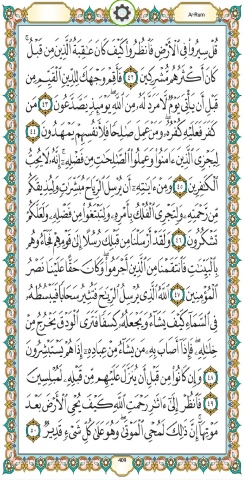 Ar-Rum
قُلْ سِيرُوا۟ فِى ٱلْأَرْضِ فَٱنظُرُوا۟ كَيْفَ كَانَ عَـٰقِبَةُ ٱلَّذِينَ مِن قَبْلُ ۚ
كَانَ أَكْثَرُهُم مُّشْرِكِينَ ٤٢ فَأَقِمْ وَجْهَكَ لِلدِّينِ ٱلْقَيِّمِ مِن
قَبْلِ أَن يَأْتِىَ يَوْمٌ لَّا مَرَدَّ لَهُۥ مِنَ ٱللَّهِ ۖ يَوْمَئِذٍ يَصَّدَّعُونَ ٤٣ مَن
كَفَرَ فَعَلَيْهِ كُفْرُهُۥ ۖ وَمَنْ عَمِلَ صَـٰلِحًا فَلِأَنفُسِهِمْ يَمْهَدُونَ ٤٤
لِيَجْزِىَ ٱلَّذِينَ ءَامَنُوا۟ وَعَمِلُوا۟ ٱلصَّـٰلِحَـٰتِ مِن فَضْلِهِۦٓ ۚ إِنَّهُۥ لَا يُحِبُّ
ٱلْكَـٰفِرِينَ ٤٥ وَمِنْ ءَايَـٰتِهِۦٓ أَن يُرْسِلَ ٱلرِّيَاحَ مُبَشِّرَٰتٍ وَلِيُذِيقَكُم
مِّن رَّحْمَتِهِۦ وَلِتَجْرِىَ ٱلْفُلْكُ بِأَمْرِهِۦ وَلِتَبْتَغُوا۟ مِن فَضْلِهِۦ وَلَعَلَّكُمْ
تَشْكُرُونَ ٤٦ وَلَقَدْ أَرْسَلْنَا مِن قَبْلِكَ رُسُلًا إِلَىٰ قَوْمِهِمْ فَجَآءُوهُم
بِٱلْبَيِّنَـٰتِ فَٱنتَقَمْنَا مِنَ ٱلَّذِينَ أَجْرَمُوا۟ ۖ وَكَانَ حَقًّا عَلَيْنَا نَصْرُ
ٱلْمُؤْمِنِينَ ٤٧ ٱللَّهُ ٱلَّذِى يُرْسِلُ ٱلرِّيَـٰحَ فَتُثِيرُ سَحَابًا فَيَبْسُطُهُۥ
فِى ٱلسَّمَآءِ كَيْفَ يَشَآءُ وَيَجْعَلُهُۥ كِسَفًا فَتَرَى ٱلْوَدْقَ يَخْرُجُ مِنْ
خِلَـٰلِهِۦ ۖ فَإِذَآ أَصَابَ بِهِۦ مَن يَشَآءُ مِنْ عِبَادِهِۦٓ إِذَا هُمْ يَسْتَبْشِرُونَ
٤٨ وَإِن كَانُوا۟ مِن قَبْلِ أَن يُنَزَّلَ عَلَيْهِم مِّن قَبْلِهِۦ لَمُبْلِسِينَ
٤٩ فَٱنظُرْ إِلَىٰٓ ءَاثَـٰرِ رَحْمَتِ ٱللَّهِ كَيْفَ يُحْىِ ٱلْأَرْضَ بَعْدَ
مَوْتِهَآ ۚ إِنَّ ذَٰلِكَ لَمُحْىِ ٱلْمَوْتَىٰ ۖ وَهُوَ عَلَىٰ كُلِّ شَىْءٍ قَدِيرٌ ٥٠
409